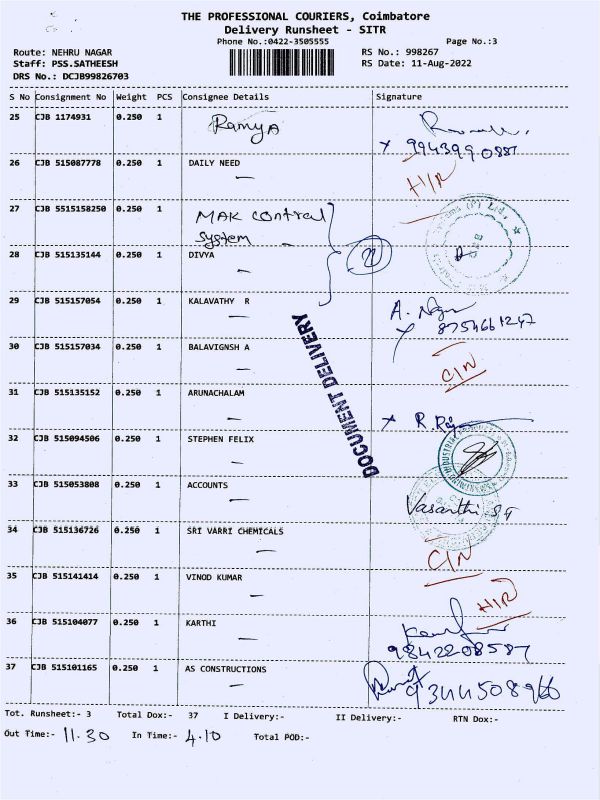 THE PROFESSIONAL COURIERS, Coimbatore
Delivery Runsheet - SITR
Phone No.:0422-3505555 Page No.:3
Route: NEHRU NAGAR RS No.: 998267
Staff: PSS.SATHEESH RS Date: 11-Aug-2022
DRS No.: DCJB99826703
S No Consignment No Weight PCS Consignee Details Signature
25 CJB 1174931 0.250 1 Ramya
9943990887
26 CJB 515087778 0.250 1 DAILY NEED H/R
27 CJB 5515158250 0.250 1 MAK control
system
28 CJB 515135144 0.250 1 DIVYA
29 CJB 515157054 0.250 1 KALAVATHY R
8754661247
30 CJB 515157034 0.250 1 BALAVIGNSH A C/N
31 CJB 515135152 0.250 1 ARUNACHALAM
DOCUMENT DELIVERY
32 CJB 515094506 0.250 1 STEPHEN FELIX
33 CJB 515053808 0.250 1 ACCOUNTS
Vasanthi
34 CJB 515136726 0.250 1 SRI VARRI CHEMICALS C/N
35 CJB 515141414 0.250 1 VINOD KUMAR H/R
36 CJB 515104077 0.250 1 KARTHI
9842208587
37 CJB 515101165 0.250 1 AS CONSTRUCTIONS
Tot. Runsheet:- 3 Total Dox:- 37 I Delivery:- II Delivery:- RTN Dox:-
Out Time:- 11.30 In Time:- 4.10 Total POD:-